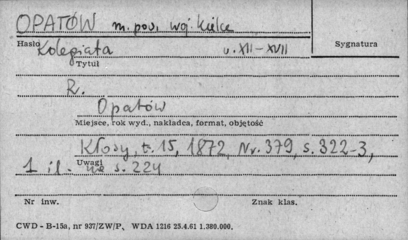 OPATÓW m. pow. woj. Kielce
Hasło Kolegiata w. XII-XVII Sygnatura
Tytuł
R.
Opatów
Miejsce, rok wyd., nakładca, format, objętość
Kłosy, t. 15, 1872, Nr. 379, s. 322-3,
Uwagi
1 il. na s. 224
Nr inw. Znak klas.
CWD - B-15a, nr 937/ZW/P, WDA 1216 25.4.61 1.380.000.